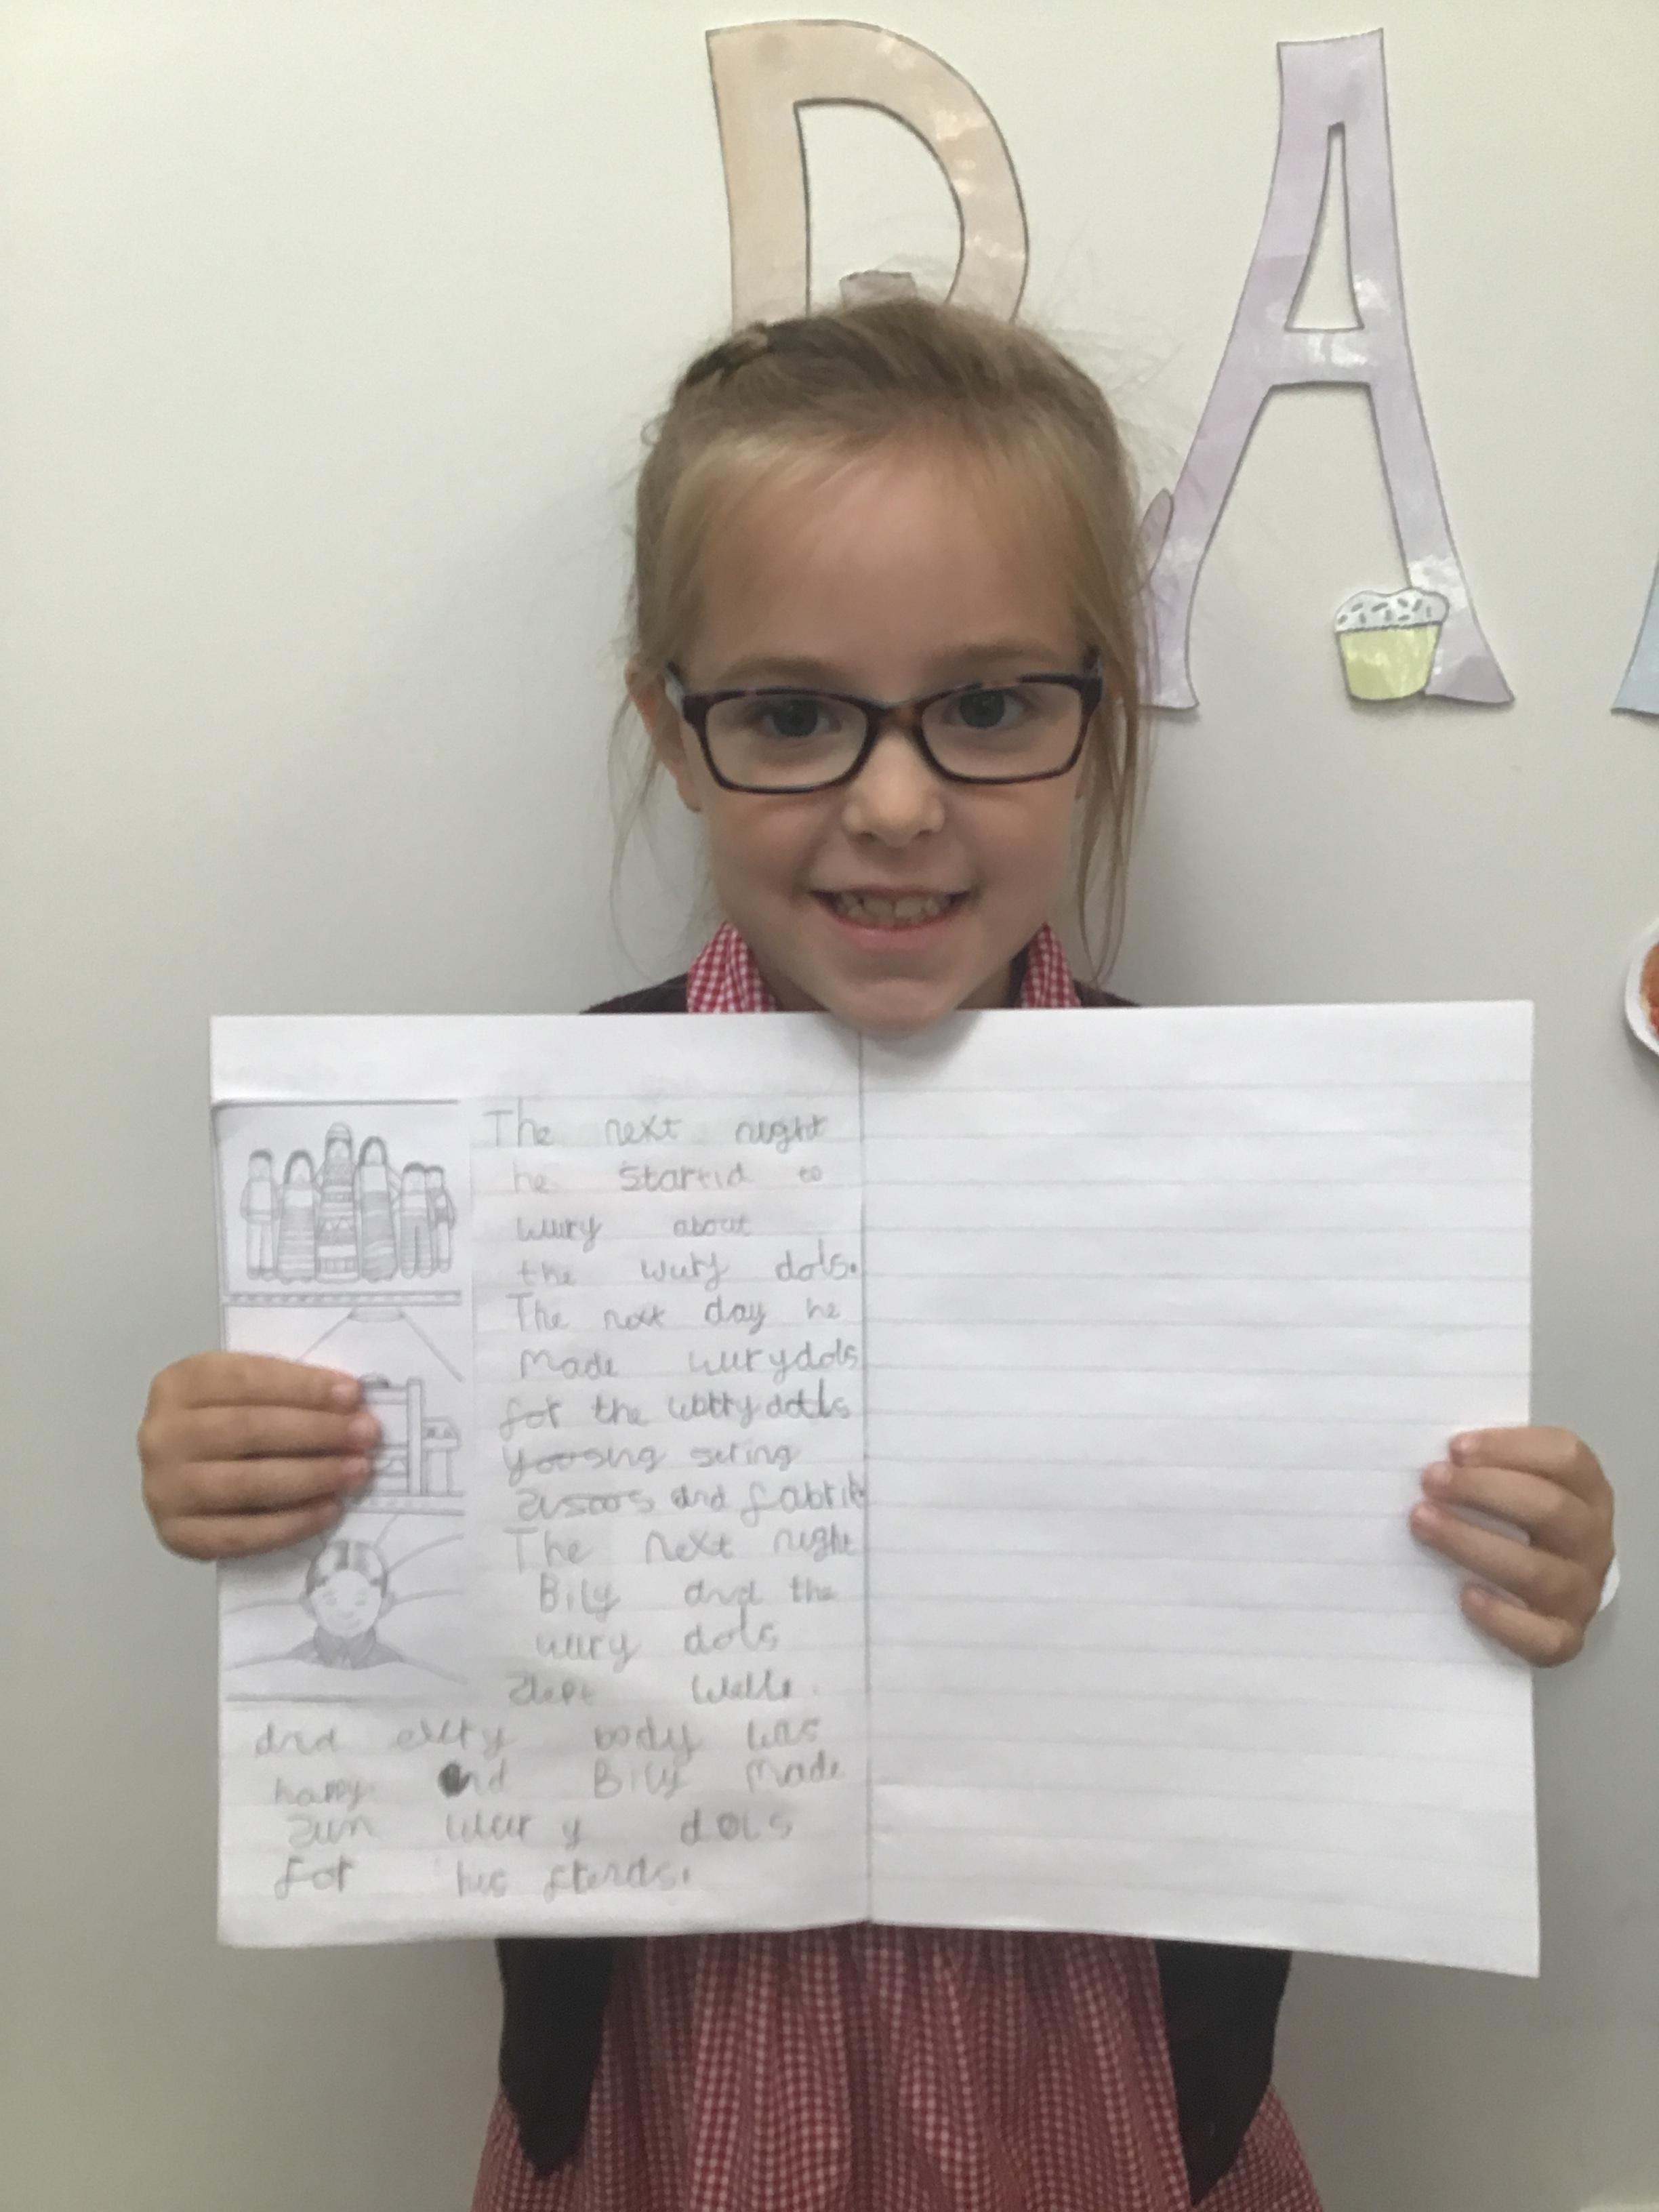 D A
The next night
he startid to
wury about
the wury dols.
The next day he
made wurydols
for the worrydolls
yoosing string
and fabrik
The next night
Bily and the
wury dols
slept well.
and evry body was
happy and Bily made
sum wury dols
for his frends.